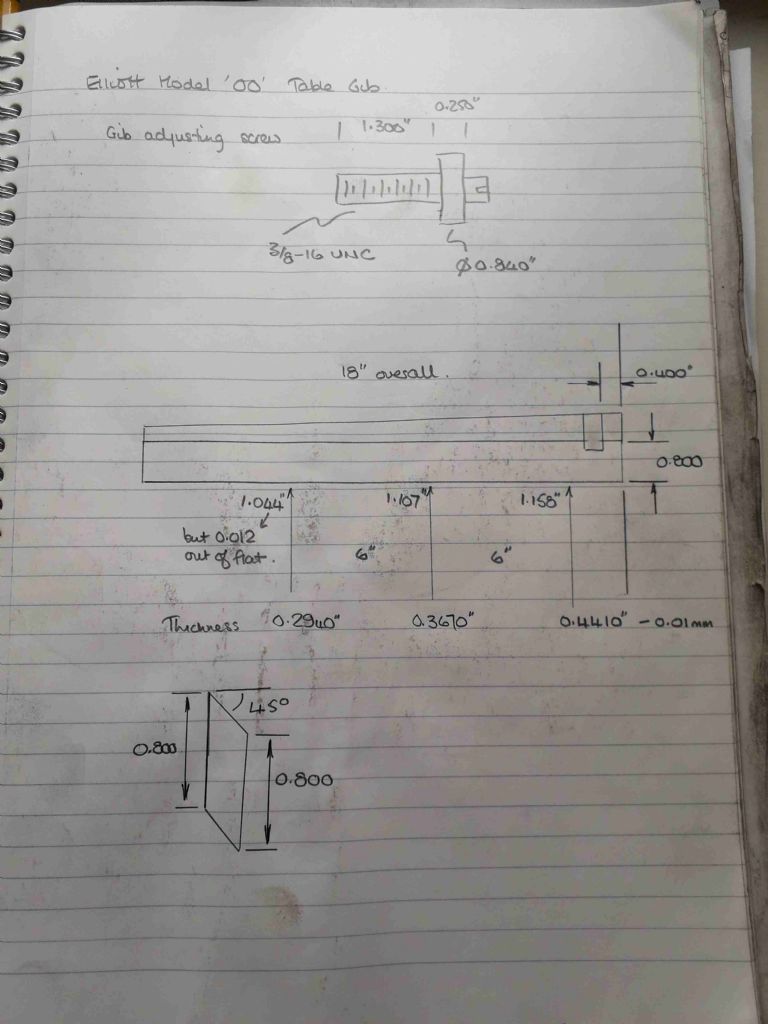 Elliott Model '00' Table Gib.
0.250"
Gib adjusting screw
1.300"
3/8-16 UNC
Ø0.840"
18" overall.
0.400"
0.800
1.044"
1.107"
1.158"
but 0.012
out of flat.
6"
6"
Thickness 0.2940" 0.3670" 0.4410" - 0.01mm
45°
0.800
0.800